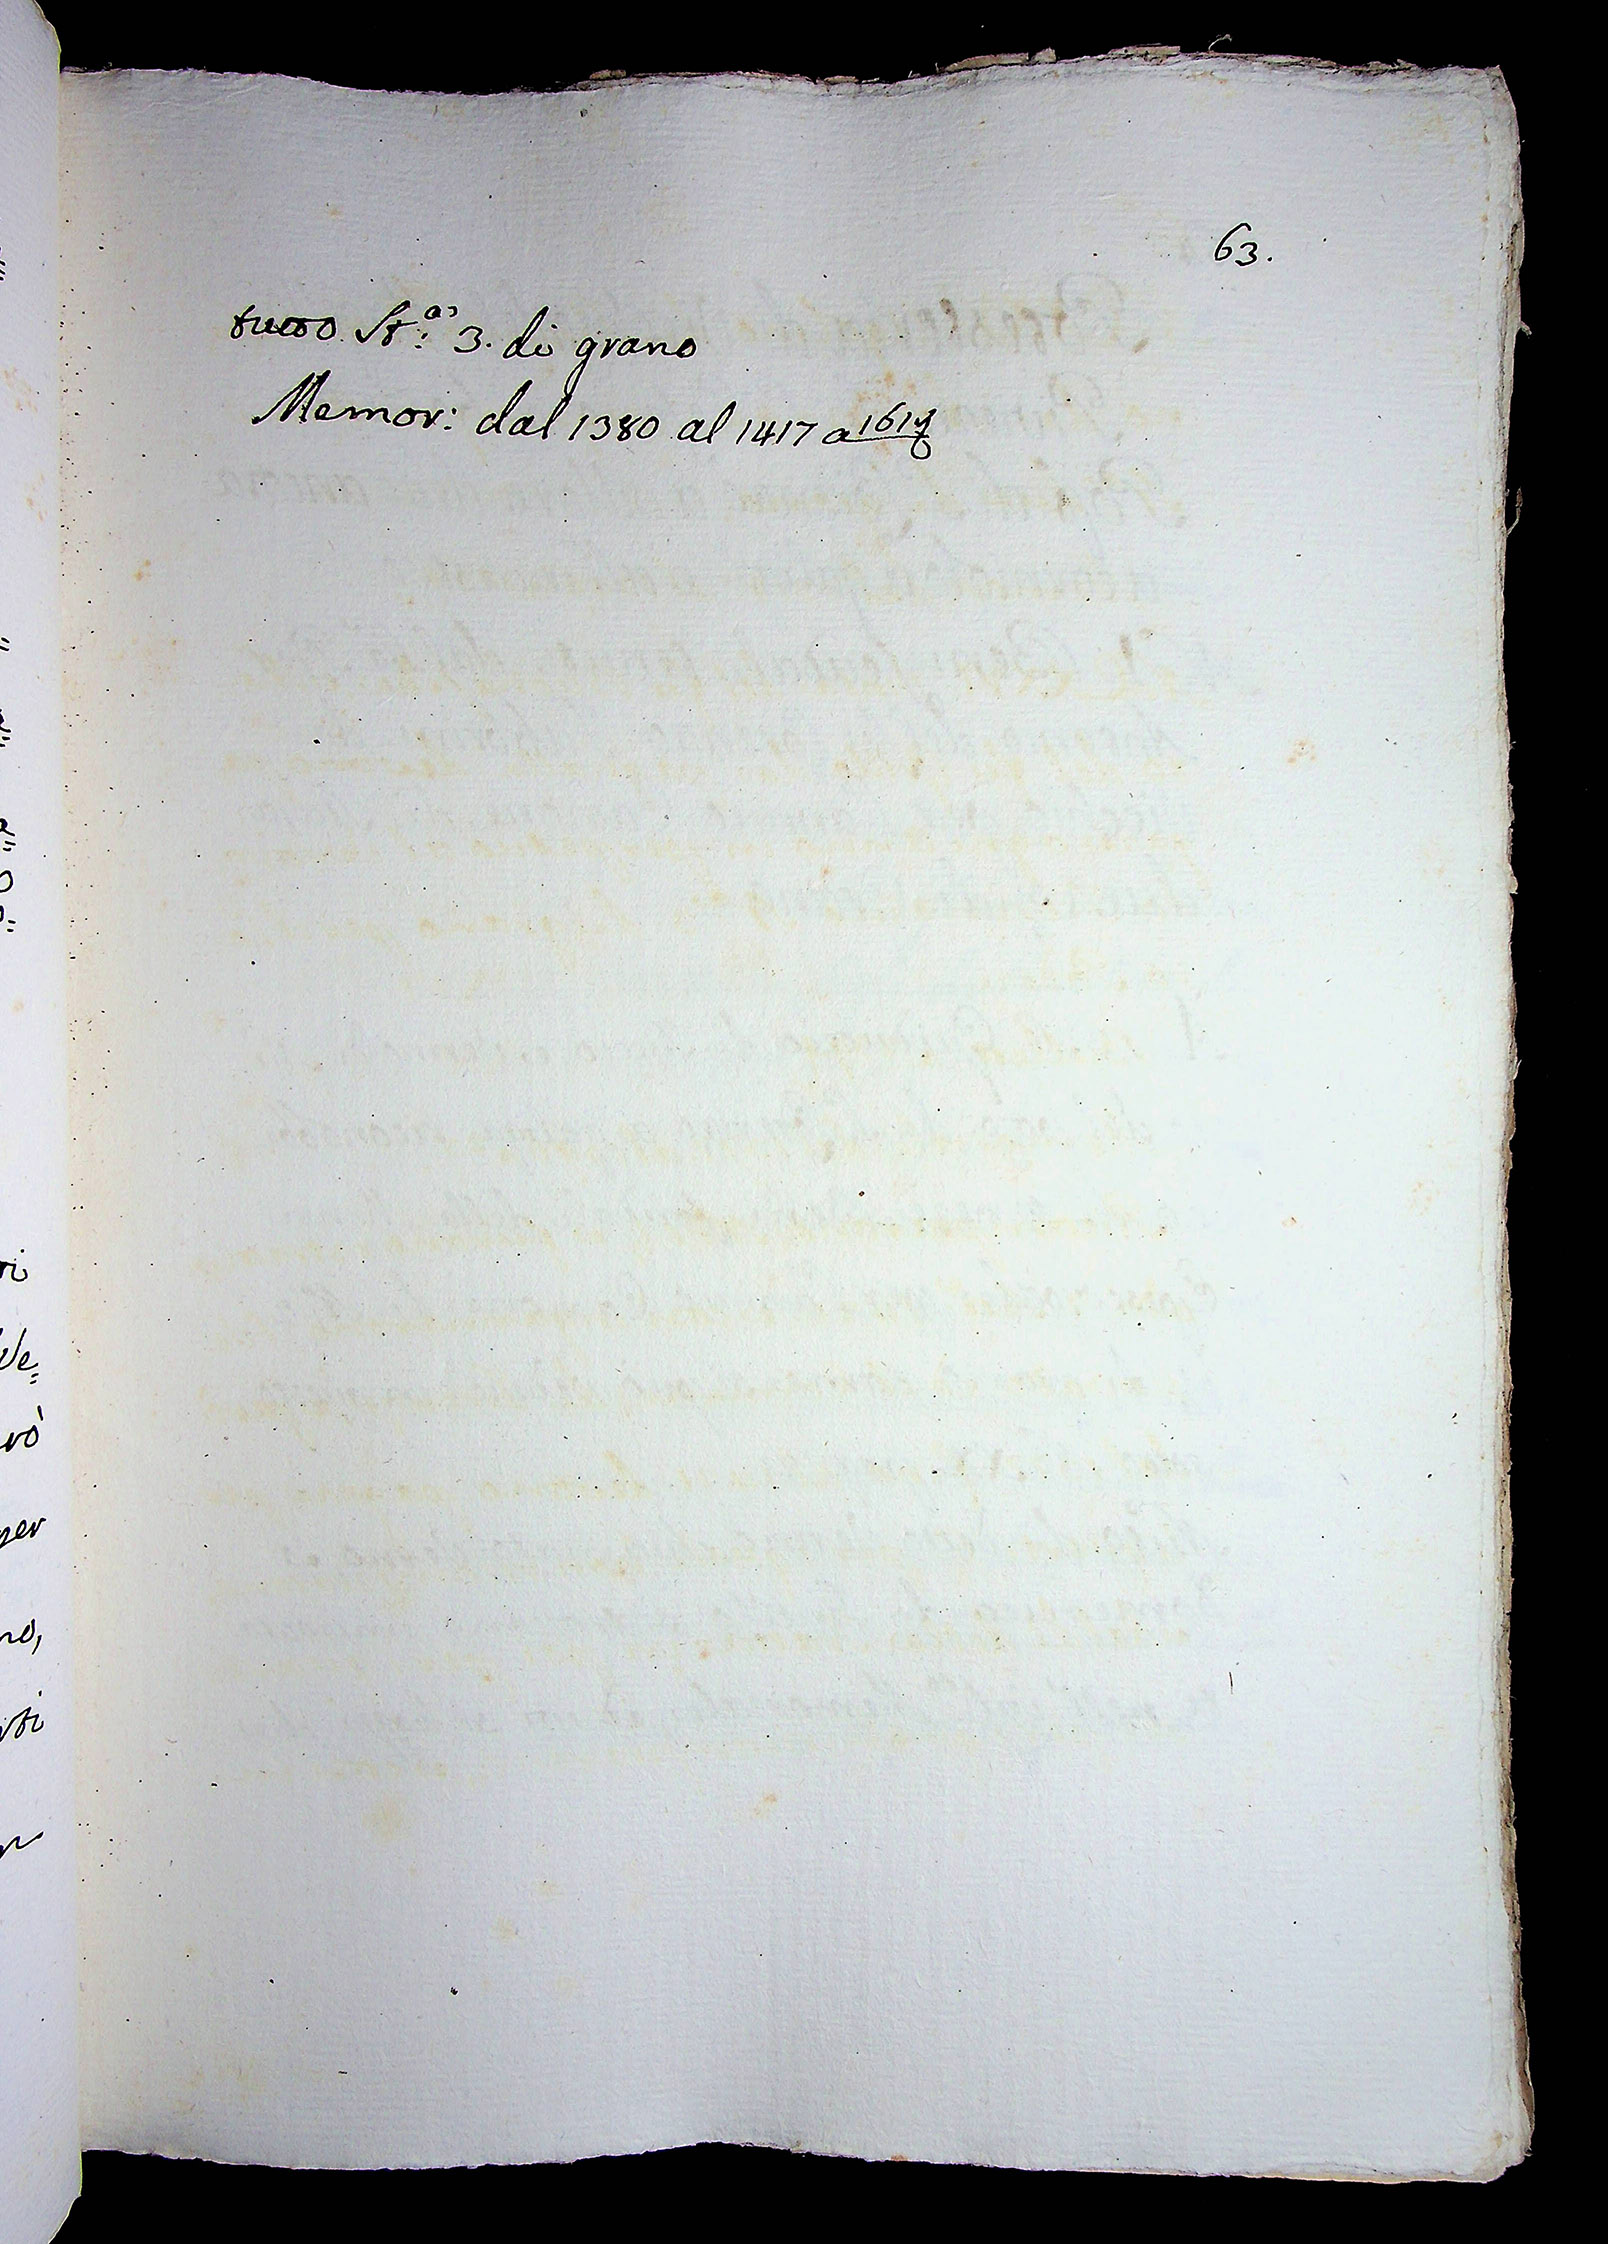 63.
tutto St.ª 3. di grano
Memor: dal 1380 al 1417 a 161
ri
Ve=
rò
per
no,